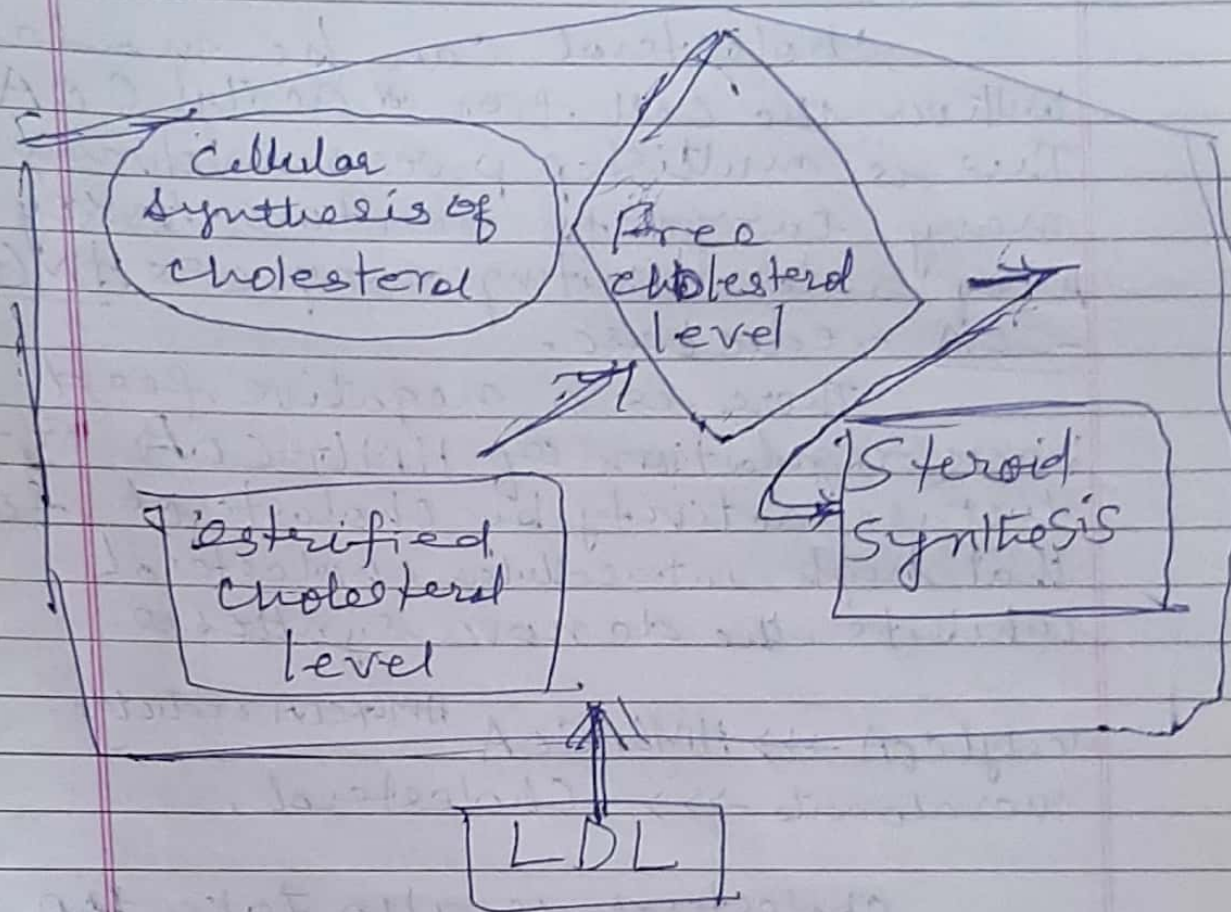 Cellular
synthesis of
cholesterol
Free
cholesterol
level
Steroid
synthesis
esterified
cholesterol
level
LDL